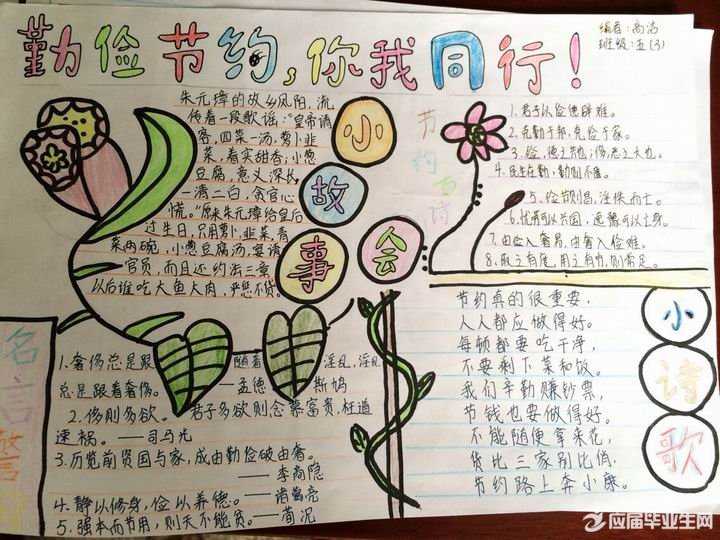 勤俭节约,你我同行!
编者:高洁
班级:五(3)
朱元璋的故乡凤阳,流
传着一段歌谣:“皇帝请
客,四菜一汤,萝卜韭
菜,着实甜香;小葱
豆腐,意义深长,
一清二白,贪官心
慌。”原来朱元璋给皇后
过生日,只用萝卜,韭菜,青
菜两碗,小葱豆腐汤,宴请
官员,而且还约法三章:
以后谁吃大鱼大肉,严惩不贷。
小
故
事
会
1.君子以俭德辟难。
2.克勤于邦,克俭于家。
3.俭,德之共也;侈,恶之大也。
4.民生在勤,勤则不匮。
5.俭节则昌,淫佚而亡。
6.忧劳可以兴国,逸豫可以亡身。
7.由俭入奢易,由奢入俭难。
8.取之有度,用之有节,则常足。
名言警
1.奢侈总是跟随着淫乱,淫乱
总是跟着奢侈。——孟德斯鸠
2.侈则多欲。君子多欲则念慕富贵,枉道
速祸。——司马光
3.历览前贤国与家,成由勤俭破由奢。
——李商隐
4.静以修身,俭以养德。——诸葛亮
5.强本而节用,则天不能贫。——荀况
节约真的很重要,
人人都应做得好。
每顿都要吃干净,
不要剩下菜和饭。
我们辛勤赚钞票,
节钱也要做得好。
不能随便拿来花,
货比三家别比俏,
节约路上奔小康。
小
诗
歌
应届毕业生网